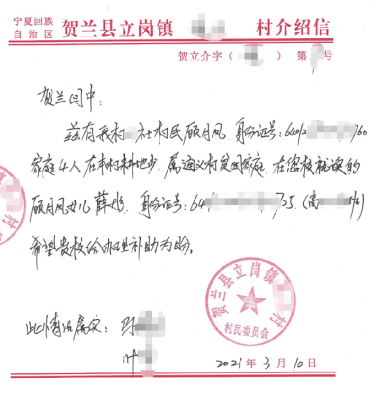 宁夏回族
自治区 贺兰县立岗镇 村介绍信
贺立介字（ ）第 号
贺兰回中：
兹有我村 社村民顾月凤 身份证号：640 760
家庭4人 在本村耕地少，属 村贫困家庭，在您校就读的
顾月凤女儿薛 ，身份证号：64 35（高
希望贵校给办理补助为盼。
此情况属实：
叶
贺兰县立岗镇 村
村民委员会
2021年3月10日